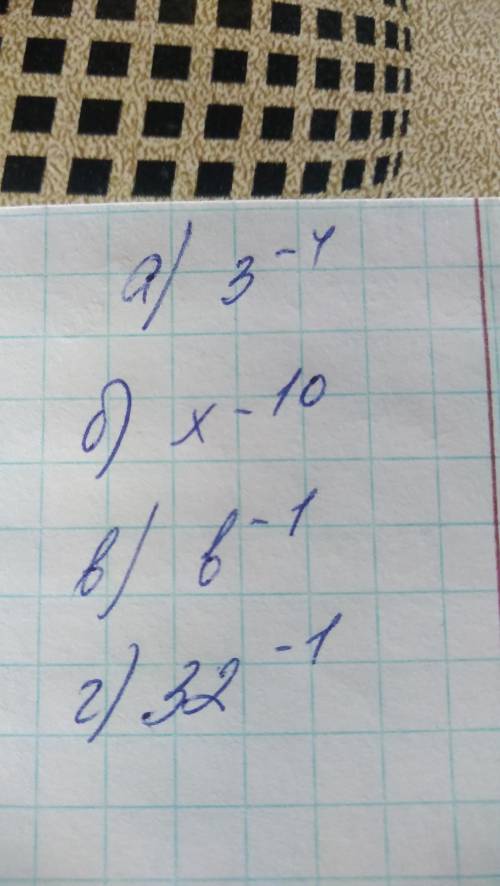 а) 3⁻⁴
б) x⁻¹⁰
в) b⁻¹
г) 32⁻¹